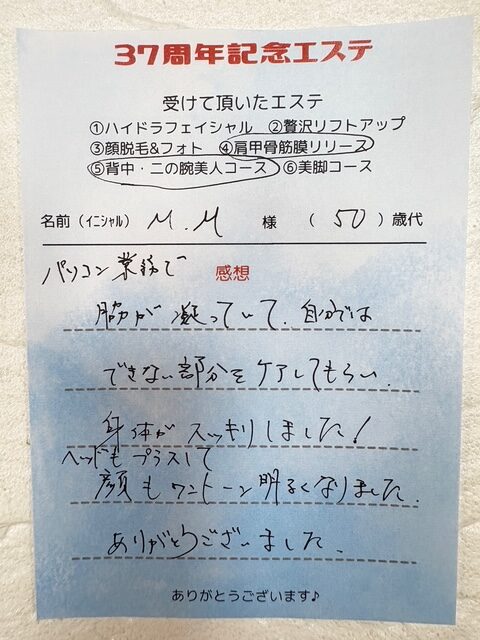 37周年記念エステ
受けて頂いたエステ
①ハイドラフェイシャル ②贅沢リフトアップ
③顔脱毛&フォト ④肩甲骨筋膜リリース
⑤背中・二の腕美人コース ⑥美脚コース
名前(イニシャル) M.M 様 (50)歳代
パソコン業務で
感想
脇が凝っていて、自分では
できない部分をケアしてもらい、
身体がスッキリしました!
ヘッドもプラスして
顔もワントーン明るくなりました。
ありがとうございました。
ありがとうございます♪